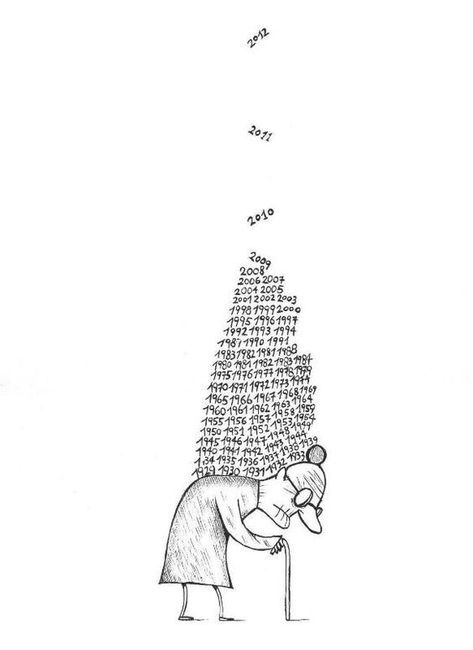 2012
2011
2010
2009
2008
2006 2007
2004 2005
2001 2002 2003
1998 1999 2000
1995 1996 1997
1992 1993 1994
1989 1990 1991
1983 1982 1981 1988
1980 1981 1982 1983 1984
1975 1976 1977 1978 1979
1970 1971 1972 1973 1974
1965 1966 1967 1968 1969
1960 1961 1962 1963 1964
1955 1956 1957 1958 1959
1950 1951 1952 1953 1954
1945 1946 1947 1948 1949
1940 1941 1942 1943 1944
1935 1936 1937 1938 1939
1929 1930 1931 1932 1933